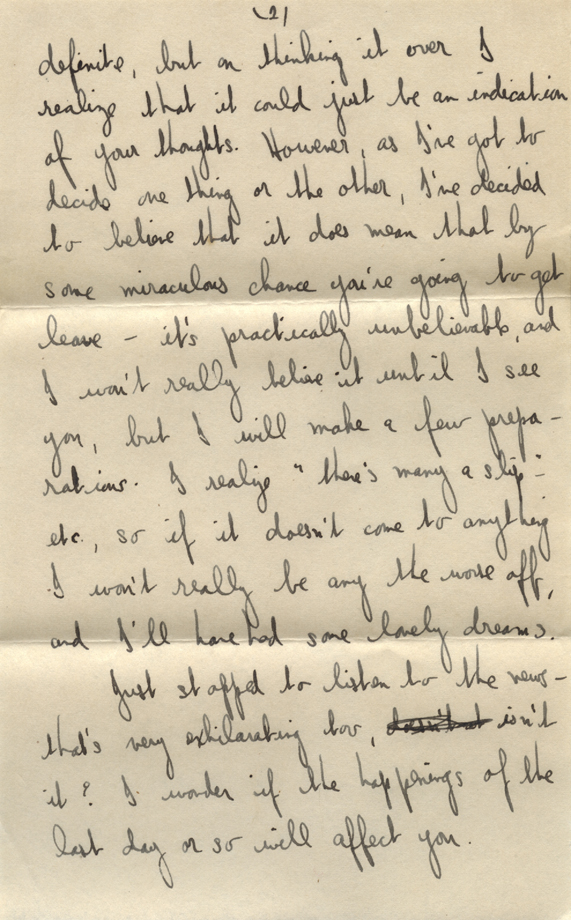 (2)
definite, but on thinking it over I
realize that it could just be an indication
of your thoughts. However, as I've got to
decide one thing or the other, I've decided
to believe that it does mean that by
some miraculous chance you're going to get
leave - it's practically unbelievable, and
I won't really believe it until I see
you, but I will make a few prepa-
rations. I realize "there's many a slip"-
etc., so if it doesn't come to anything
I won't really be any the worse off,
and I'll have had some lovely dreams.
Just stopped to listen to the news-
that's very exhilarating too, isn't
it? I wonder if the happenings of the
last day or so will affect you.